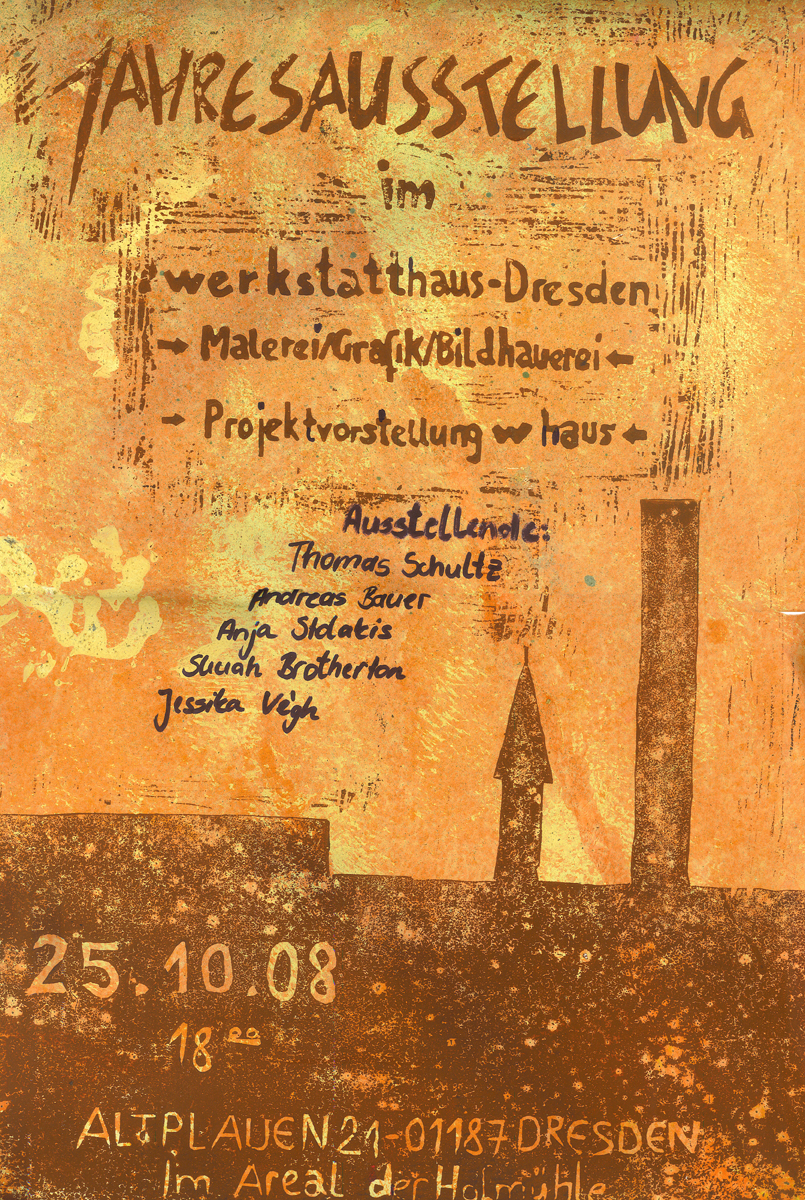 JAHRESAUSSTELLUNG
im
werkstatthaus-Dresden
→ Malerei/Grafik/Bildhauerei ←
→ Projektvorstellung w haus ←
Ausstellende:
Thomas Schultz
Andreas Bauer
Anja Stolakis
Brotherton
Jessika Vègh
25.10.08
18 00
ALTPLAUEN 21-01187 DRESDEN
Im Areal der Hofmühle